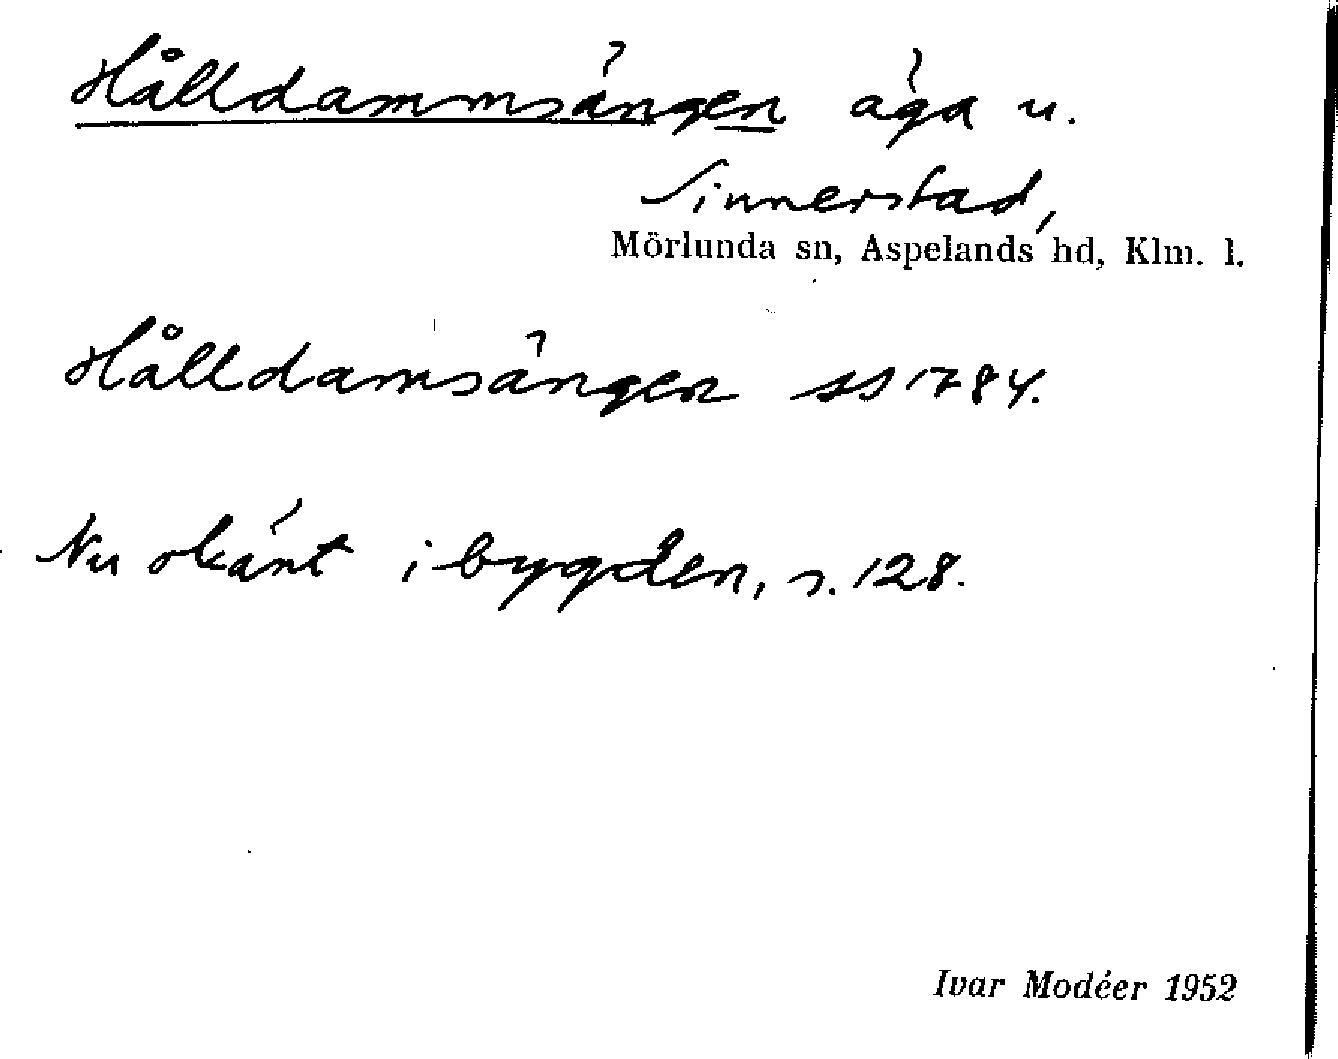 Hålldammsängen äga u.
Sinnerstad,
Mörlunda sn, Aspelands hd, Klm. l.
Hålldamsängen ss 1784.
Nu okänt i bygden, s. 128.
Ivar Modéer 1952